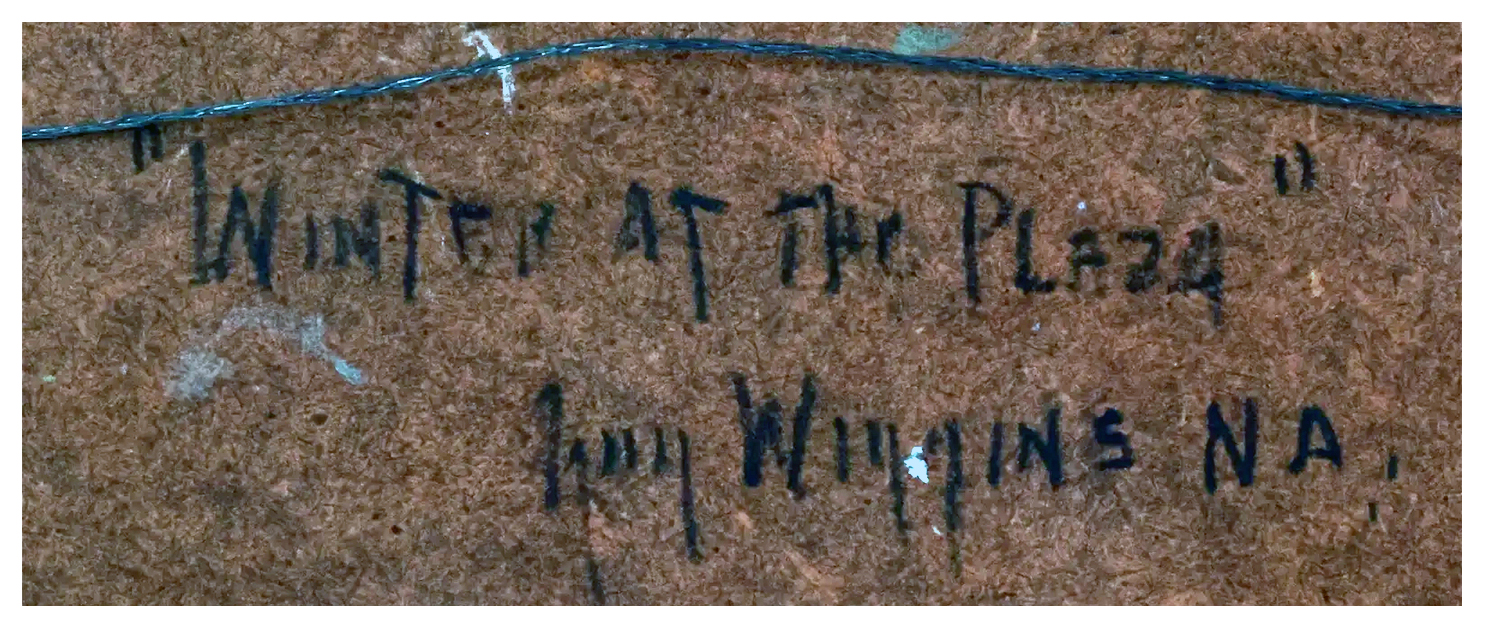 "WINTER AT THE PLAZA"
Guy WIggINS NA.